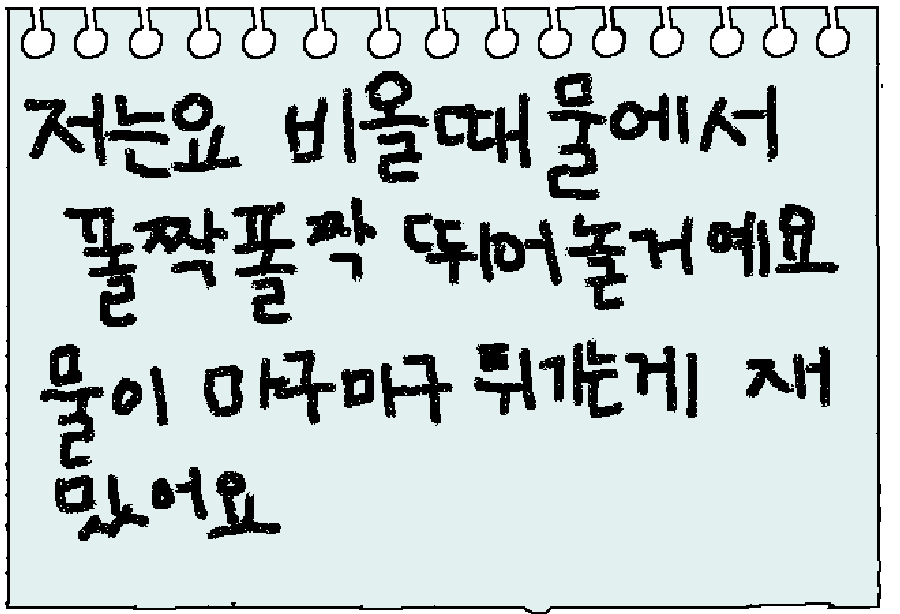 저는요 비올때 물에서
폴짝폴짝 뛰어놀거예요
물이 마구마구 튀가는게 재
밌어요